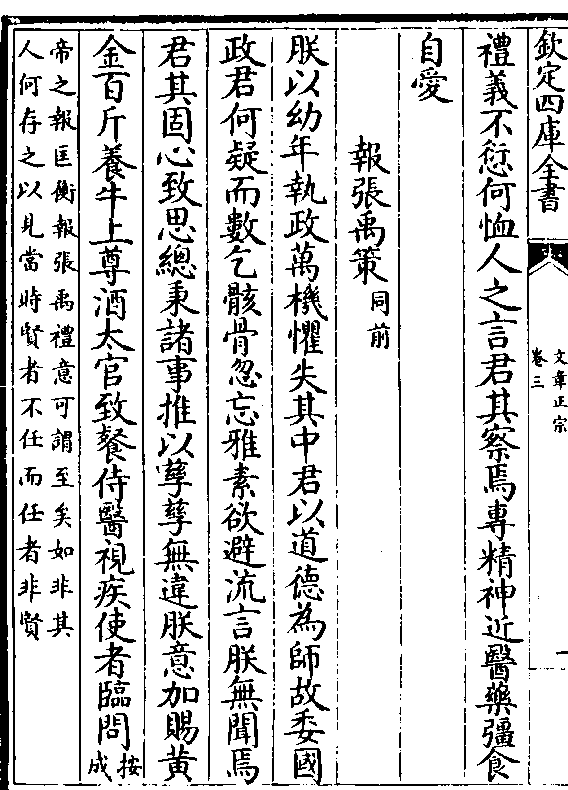 欽定四庫全書
文章正宗
卷三
禮義不愆何恤人之言君其察焉專精神近醫藥彊食
自愛
報張禹策同前
朕以幼年執政萬機懼失其中君以道德為師故委國
政君何疑而數乞骸骨忽忘雅素欲避流言朕無聞焉
君其固心致思總秉諸事推以孳孳無違朕意加賜黃
金百斤養牛上尊酒太官致餐侍醫視疾使者臨問按成
帝之報匡衡報張禹禮意可謂至矣如非其
人何存之以見當時賢者不任而任者非賢